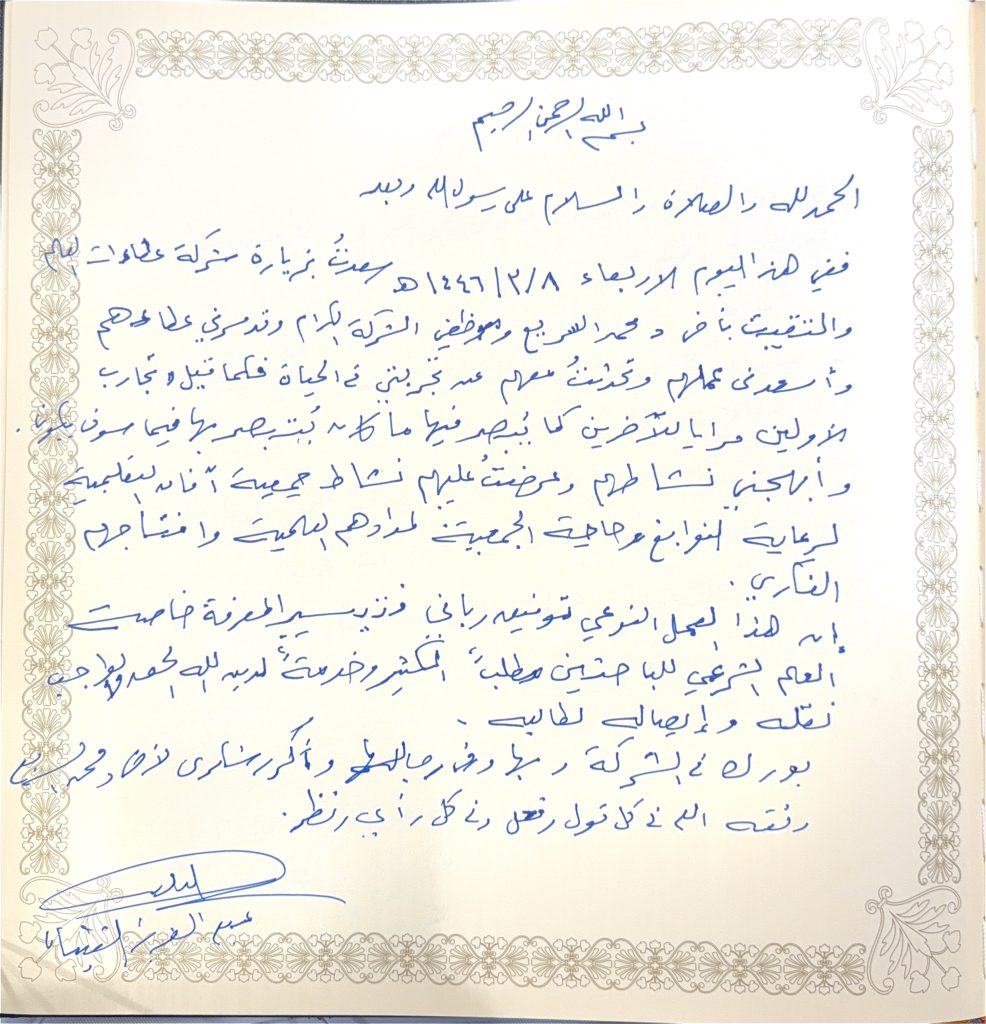 بسم الله الرحمن الرحيم
الحمد لله والصلاة والسلام على رسول الله وبعد
ففي هذا اليوم الاربعاء ١٤٤٦/٣/٨هـ سعدتُ بزيارة شركة عطاءات العلم
والتقيت بأخي د محمد السريع وموظفي الشركة الكرام وقد سرني عطاءهم
وأسعدني عملهم وتحدثتُ معهم عن تجربتي في الحياة فكما قيل وتجارب
الأولين مرايا للآخرين كما يُبصر فيها ما كان يُتبصر بها فيما سوف يكون.
وأبهجني نشاطهم وعرضتُ عليهم نشاط جمعية آفاق التعليمية
لرعاية النوابغ وحاجة الجمعية لموادهم العلمية وانتاجهم
الفكري.
إن هذا العمل النوعي توفيق رباني فتيسير المعرفة خاصة
العلم الشرعي للباحثين مطلب الكثير وخدمةً لدين الله الحق والواجب
نقله وإيصاله لطالبه.
بورك في الشركة وبها وفي رجالها وأكرر شكري لأخي د محمد السريع
وفقه الله في كل قول وفعل وفي كل رأي ونظر.
عبدالعزيز الثنيان